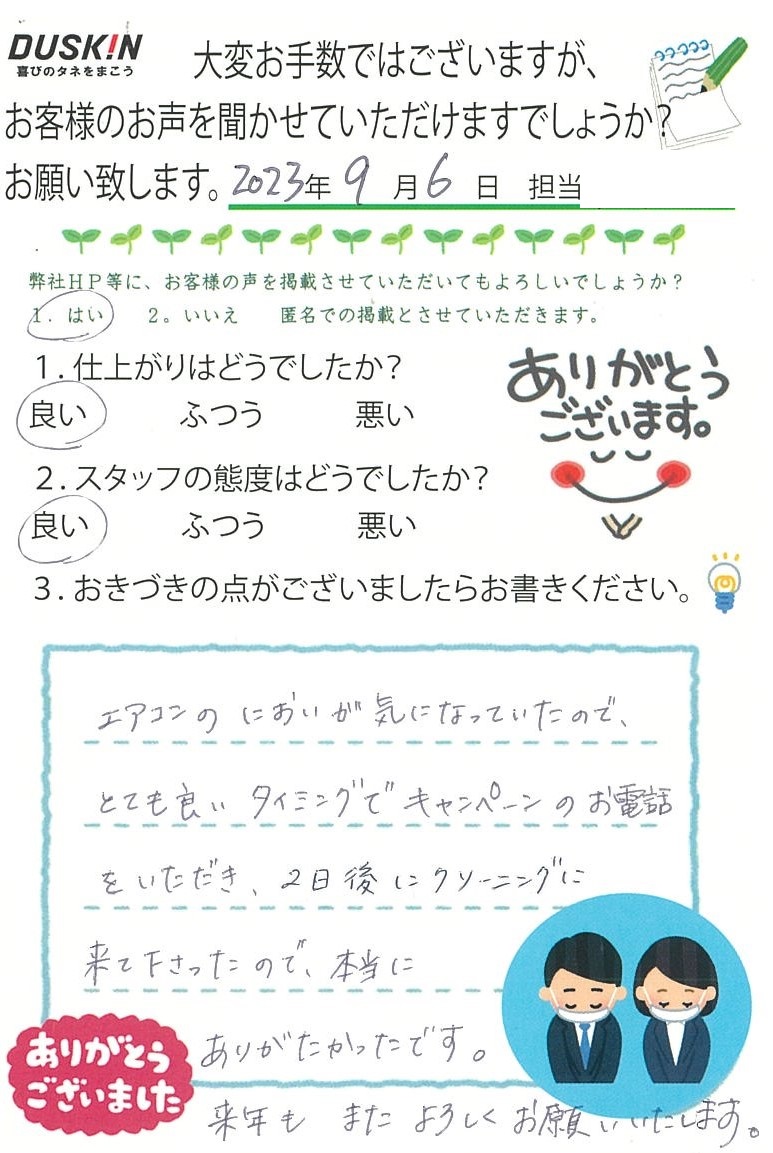 DUSK!N
喜びのタネをまこう
大変お手数ではございますが、
お客様のお声を聞かせていただけますでしょうか?
お願い致します。2023年 9月 6日 担当
弊社HP等に、お客様の声を掲載させていただいてもよろしいでしょうか?
1. はい 2。いいえ 匿名での掲載とさせていただきます。
1.仕上がりはどうでしたか?
良い ふつう 悪い
ありがとう
ございます。
2.スタッフの態度はどうでしたか?
良い ふつう 悪い
3.おきづきの点がございましたらお書きください。
エアコンの においが気になっていたので、
とても良い タイミングで キャンペーンの お電話
をいただき、2日後にクリーニングに
来て下さったので、本当に
ありがたかったです。
来年も また よろしく お願いいたします。
ありがとう
ございました